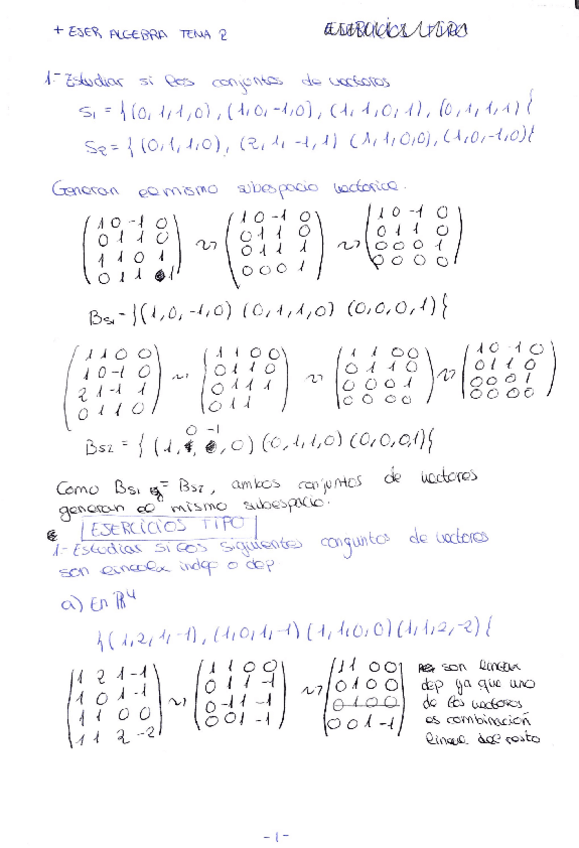 + EJER ALGEBRA TEMA 2 EJERCICIOS TIPO
1- Estudiar si los conjuntos de vectores
S1 = {(0,1,1,0), (1,0,-1,0), (1,1,0,1), (0,1,1,1)}
S2 = {(0,1,1,0), (2,1,-1,1) (1,1,0,0), (1,0,-1,0)}
Generan el mismo subespacio vectorial.
1 0 -1 0
0 1 1 0
1 1 0 1
0 1 1 1
~
1 0 -1 0
0 1 1 0
0 1 1 1
0 0 0 1
~
1 0 -1 0
0 1 1 0
0 0 0 1
0 0 0 0
BS1 = {(1,0,-1,0) (0,1,1,0) (0,0,0,1)}
1 1 0 0
1 0 -1 0
2 1 -1 1
0 1 1 0
~
1 1 0 0
0 1 1 0
0 1 1 1
0 1 1
~
1 1 0 0
0 1 1 0
0 0 0 1
0 0 0 0
~
1 0 -1 0
0 1 1 0
0 0 0 1
0 0 0 0
BS2 = {(1, 0, -1, 0) (0,1,1,0) (0,0,0,1)}
Como BS1 = BS2, ambos conjuntos de vectores
generan el mismo subespacio.
EJERCICIOS TIPO
1- Estudiar si los siguientes conjuntos de vectores
son lineal indep o dep
a) En R4
{(1,2,1,-1), (1,0,1,-1) (1,1,0,0) (1,1,2,-2)}
1 2 1 -1
1 0 1 -1
1 1 0 0
1 1 2 -2
~
1 1 0 0
0 1 1 -1
0 -1 1 -1
0 0 1 -1
~
1 1 0 0
0 1 0 0
0 1 0 0
0 0 1 -1
son linean
dep ya que uno
de los vectores
es combinación
lineal del resto
-1-